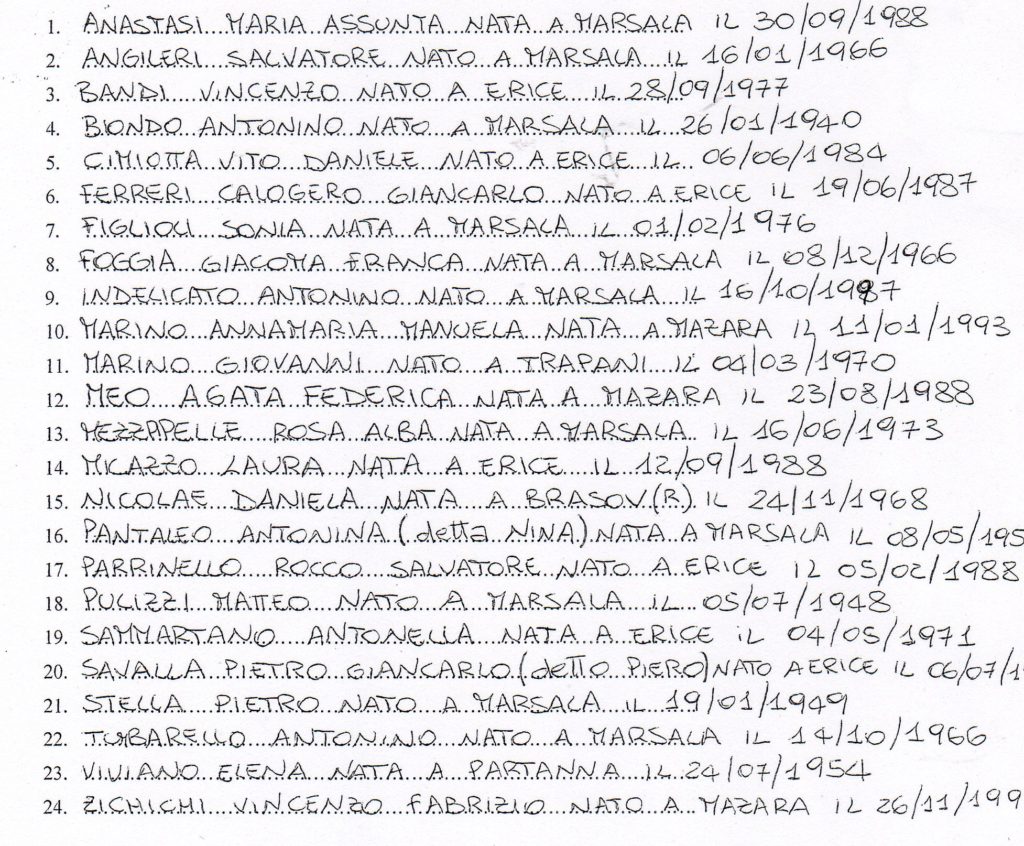 1. ANASTASI MARIA ASSUNTA NATA A MARSALA IL 30/09/1988
2. ANGILERI SALVATORE NATO A MARSALA IL 16/01/1966
3. BANDI VINCENZO NATO A ERICE IL 28/09/1977
4. BIONDO ANTONINO NATO A MARSALA IL 26/01/1940
5. CIMIOTTA VITO DANIELE NATO A ERICE IL 06/06/1984
6. FERRERI CALOGERO GIANCARLO NATO A ERICE IL 19/06/1987
7. FIGLIOLI SONIA NATA A MARSALA IL 01/02/1976
8. FOGGIA GIACOMA FRANCA NATA A MARSALA IL 08/12/1966
9. INDELICATO ANTONINO NATO A MARSALA IL 16/10/1987
10. MARINO ANNAMARIA MANUELA NATA A MAZARA IL 11/01/1993
11. MARINO GIOVANNI NATO A TRAPANI IL 04/03/1970
12. MEO AGATA FEDERICA NATA A MAZARA IL 23/08/1988
13. MEZZAPELLE ROSA ALBA NATA A MARSALA IL 16/06/1973
14. MICAZZO LAURA NATA A ERICE IL 12/09/1988
15. NICOLAE DANIELA NATA A BRASOV (R) IL 24/11/1968
16. PANTALEO ANTONINA (detta NINA) NATA A MARSALA IL 08/05/195
17. PARRINELLO ROCCO SALVATORE NATO A ERICE IL 05/02/1988
18. PULIZZI MATTEO NATO A MARSALA IL 05/07/1948
19. SAMMARTANO ANTONELLA NATA A ERICE IL 04/05/1971
20. SAVALLA PIETRO GIANCARLO (detto PIERO) NATO A ERICE IL 06/07/1
21. STELLA PIETRO NATO A MARSALA IL 19/01/1949
22. TUMBARELLO ANTONINO NATO A MARSALA IL 14/10/1966
23. VIVIANO ELENA NATA A PARTANNA IL 24/07/1954
24. ZICHICHI VINCENZO FABRIZIO NATO A MAZARA IL 26/11/199